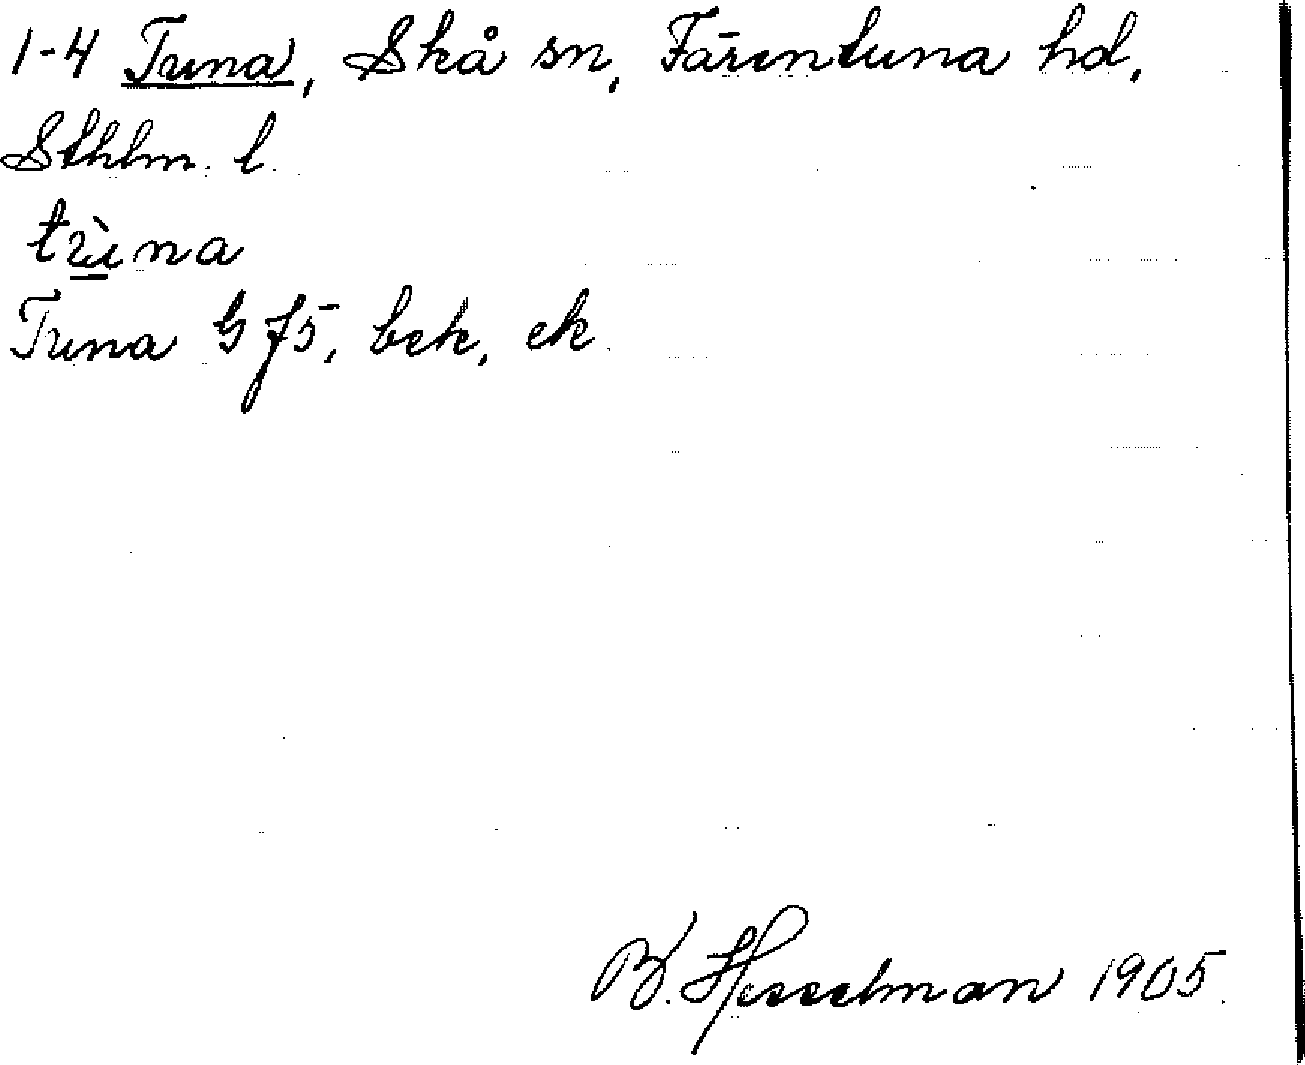 1-4 Tuna, Skå sn, Färentuna hd,
Sthlm. l.
tùna
Tuna G f5, bek, ek.
B. Hesselman 1905.